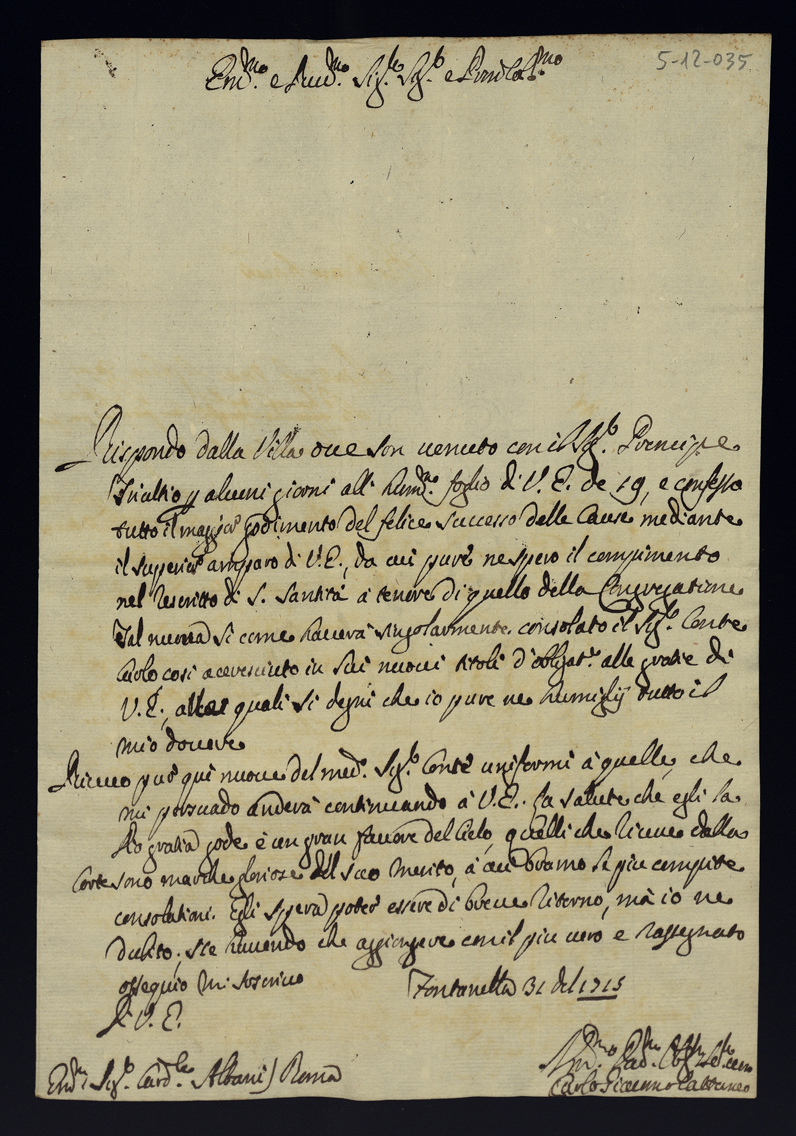 5-12-035
Em.mo e Rev.mo Sig.re Sig.r e Pron Col.mo
Rispondo dalla Villa oue son uenuto con il Sig.r Prencipe
Triultio p alcuni giorni alli hum.mi foglio di V. E. de 19, e confesso
tutto il maggior godimento del felice successo delle Cause mediante
il superior amparo di V. E., da cui pure ne spero il compimento
nel rescritto di S. Santità a tenore di quello della Congregatione
Tal nuoua si come hauerà singolarmente consolato il Sig.r Conte
Carlo così accresciuto in Lui nuoui titoli d'obligat.e alle gratie di
V. E., alle quali si degni che io pure ne humilij tutto il
mio douere
Riceuo pur qui nuoue del med.o Sig.r Conte uniformi à quelle, che
mi persuado anderà continuando à V. E. La salute che egli la
Dio gratia gode è un gran fauore del Cielo, quelli che riceue dalla
Corte sono marche gloriose del suo merito, à cui bramo le più compite
consolationi. Egli spera poter essere di breue ritorno, mà io ne
dubito, ne hauendo che aggiongere con il più uero e rassegnato
ossequio mi soscriuo
Di V. E.
Fontanella 31 del 1715
Em.mo Sig.r Card.le Albani / Roma
Carlo Giacomo Cattaneo